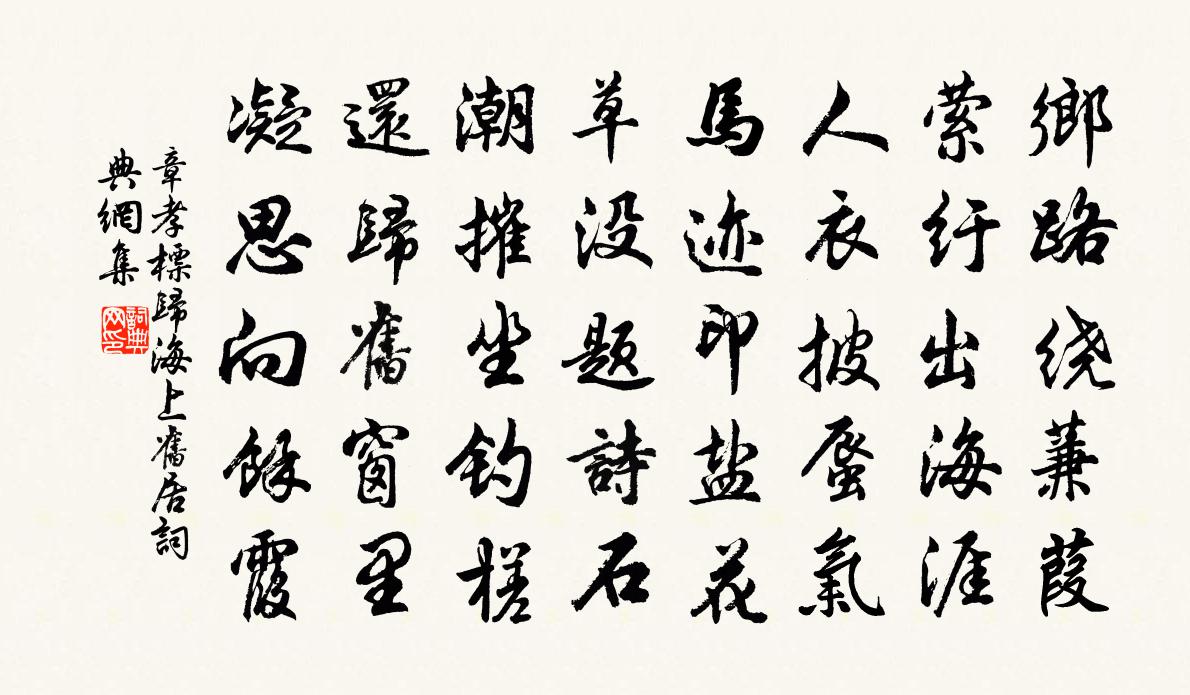 鄉路绕蒹葭
萦纡出海涯
人衣披蜃氣
馬迹印盐花
草没题詩石
潮摧坐钓槎
還歸舊窗里
凝思向餘霞
章孝標歸海上舊居詞
典網集
詞典网印